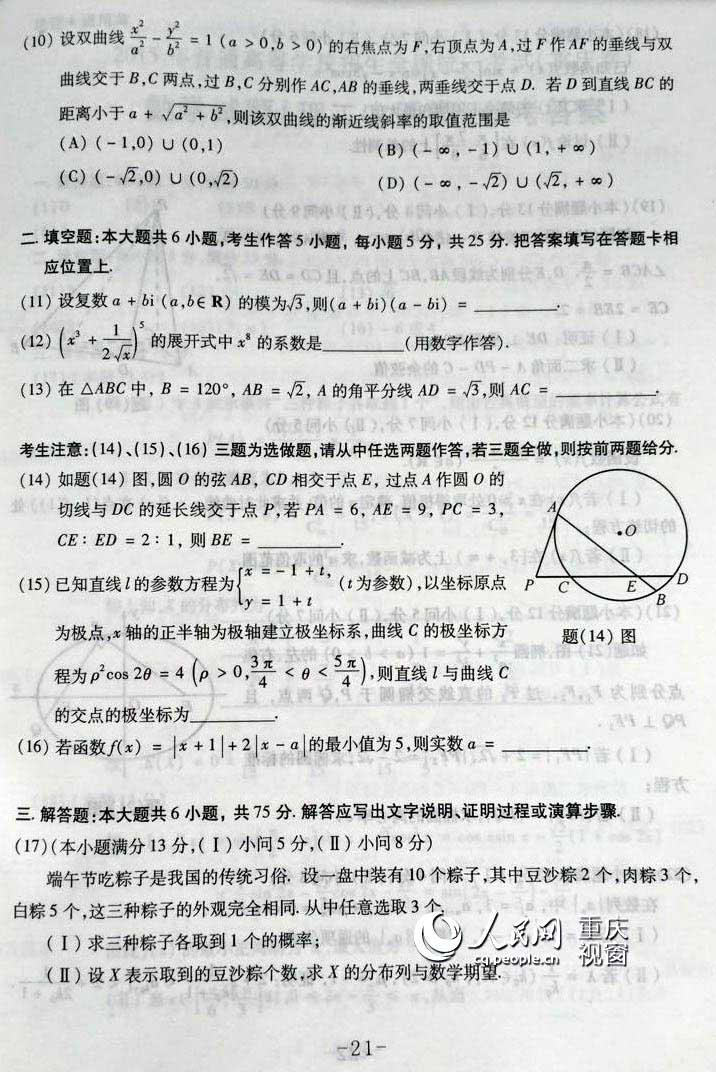 (10) 设双曲线 x²/a² - y²/b² = 1 (a > 0, b > 0) 的右焦点为 F,右顶点为 A,过 F 作 AF 的垂线与双
曲线交于 B,C 两点,过 B,C 分别作 AC,AB 的垂线,两垂线交于点 D. 若 D 到直线 BC 的
距离小于 a + √(a² + b²),则该双曲线的渐近线斜率的取值范围是
(A) (-1,0) ∪ (0,1) (B) (-∞, -1) ∪ (1, +∞)
(C) (-√2,0) ∪ (0,√2) (D) (-∞, -√2) ∪ (√2, +∞)
二. 填空题:本大题共 6 小题,考生作答 5 小题, 每小题 5 分, 共 25 分. 把答案填写在答题卡相
应位置上.
(11) 设复数 a + bi (a,b∈R) 的模为√3,则(a + bi)(a - bi) = ________.
(12) (x³ + 1/(2√x))⁵ 的展开式中 x⁸ 的系数是________(用数字作答).
(13) 在 △ABC 中, B = 120°, AB = √2, A 的角平分线 AD = √3,则 AC = ________.
考生注意:(14)、(15)、(16) 三题为选做题,请从中任选两题作答,若三题全做,则按前两题给分.
(14) 如题(14) 图,圆 O 的弦 AB, CD 相交于点 E, 过点 A 作圆 O 的
切线与 DC 的延长线交于点 P,若 PA = 6, AE = 9, PC = 3,
CE : ED = 2 : 1, 则 BE = ________.
A
O
P
C
E
D
B
题(14) 图
(15) 已知直线 l 的参数方程为{x = -1 + t, y = 1 + t (t 为参数),以坐标原点
为极点,x 轴的正半轴为极轴建立极坐标系,曲线 C 的极坐标方
程为 ρ²cos 2θ = 4 (ρ > 0, 3π/4 < θ < 5π/4),则直线 l 与曲线 C
的交点的极坐标为________.
(16) 若函数 f(x) = |x + 1| + 2|x - a| 的最小值为 5,则实数 a = ________.
三. 解答题:本大题共 6 小题, 共 75 分. 解答应写出文字说明、证明过程或演算步骤.
(17)(本小题满分 13 分,(Ⅰ) 小问 5 分,(Ⅱ) 小问 8 分)
端午节吃粽子是我国的传统习俗. 设一盘中装有 10 个粽子,其中豆沙粽 2 个,肉粽 3 个,
白粽 5 个,这三种粽子的外观完全相同. 从中任意选取 3 个.
(Ⅰ) 求三种粽子各取到 1 个的概率;
(Ⅱ) 设 X 表示取到的豆沙粽个数,求 X 的分布列与数学期望.
人民网 重庆
cq.people.cn 视窗
-21-